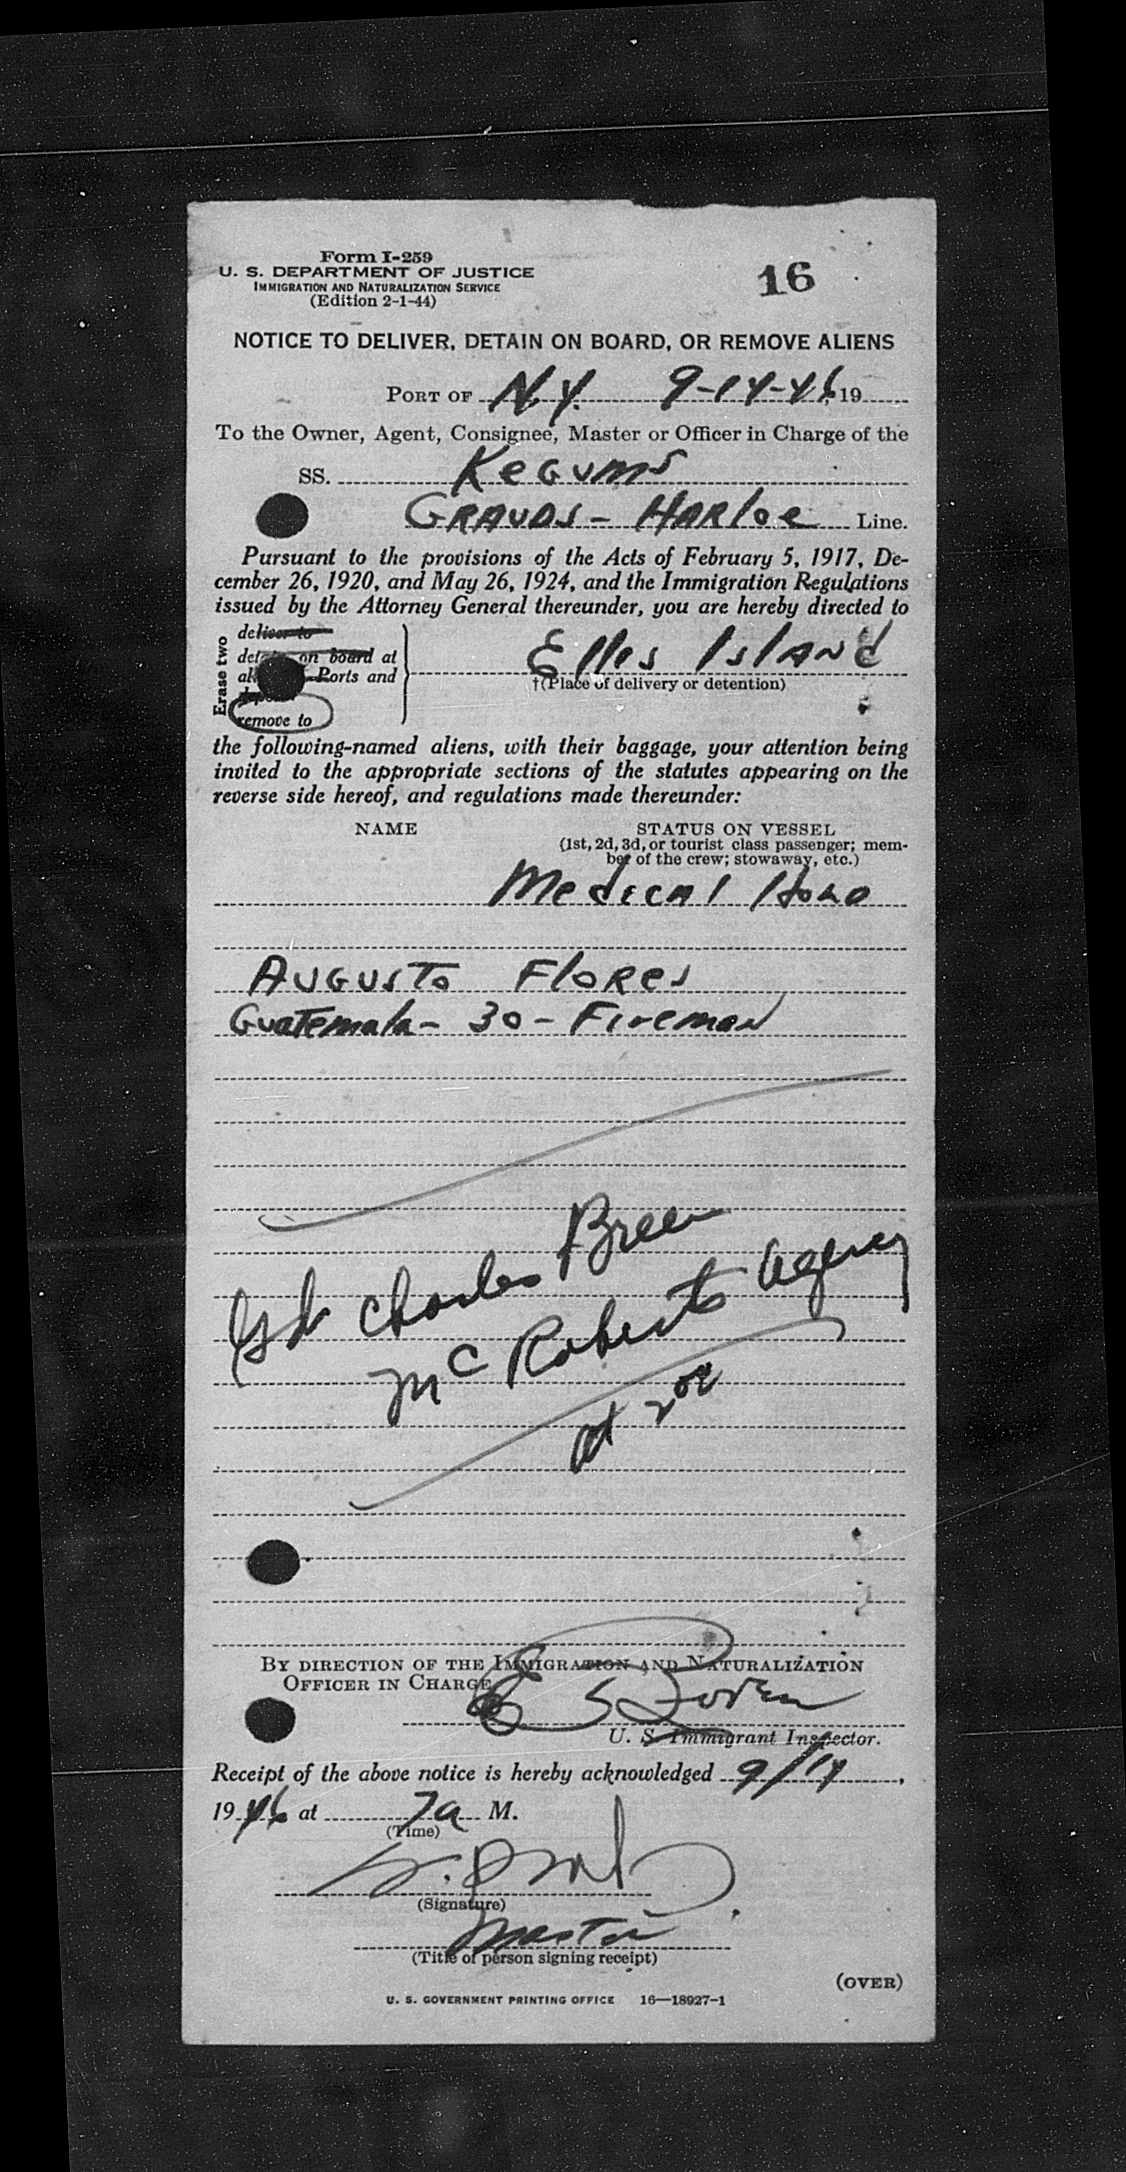 Form I-259
U. S. DEPARTMENT OF JUSTICE
IMMIGRATION AND NATURALIZATION SERVICE
(Edition 2-1-44)
16
NOTICE TO DELIVER, DETAIN ON BOARD, OR REMOVE ALIENS
PORT OF N.Y. 9-14-46, 19
To the Owner, Agent, Consignee, Master or Officer in Charge of the
SS. Kegums
GRAUDS - HARloe Line.
Pursuant to the provisions of the Acts of February 5, 1917, De-
cember 26, 1920, and May 26, 1924, and the Immigration Regulations
issued by the Attorney General thereunder, you are hereby directed to
Erase two
deliver to
on board at
Ports and
remove to
Ellis Island
†(Place of delivery or detention)
the following-named aliens, with their baggage, your attention being
invited to the appropriate sections of the statutes appearing on the
reverse side hereof, and regulations made thereunder:
NAME STATUS ON VESSEL
(1st, 2d, 3d, or tourist class passenger; mem-
ber of the crew; stowaway, etc.)
Medical Hold
AUGUSTO FLORES
Guatemala - 30 - Fireman
Gd Charles Breen
McRoberts Agency
at 2oo
BY DIRECTION OF THE IMMIGRATION AND NATURALIZATION
OFFICER IN CHARGE
U. S. Immigrant Inspector.
Receipt of the above notice is hereby acknowledged 9/14,
1946 at 7a M.
(Time)
(Signature)
Master
(Title of person signing receipt)
(OVER)
U. S. GOVERNMENT PRINTING OFFICE 16—18927-1